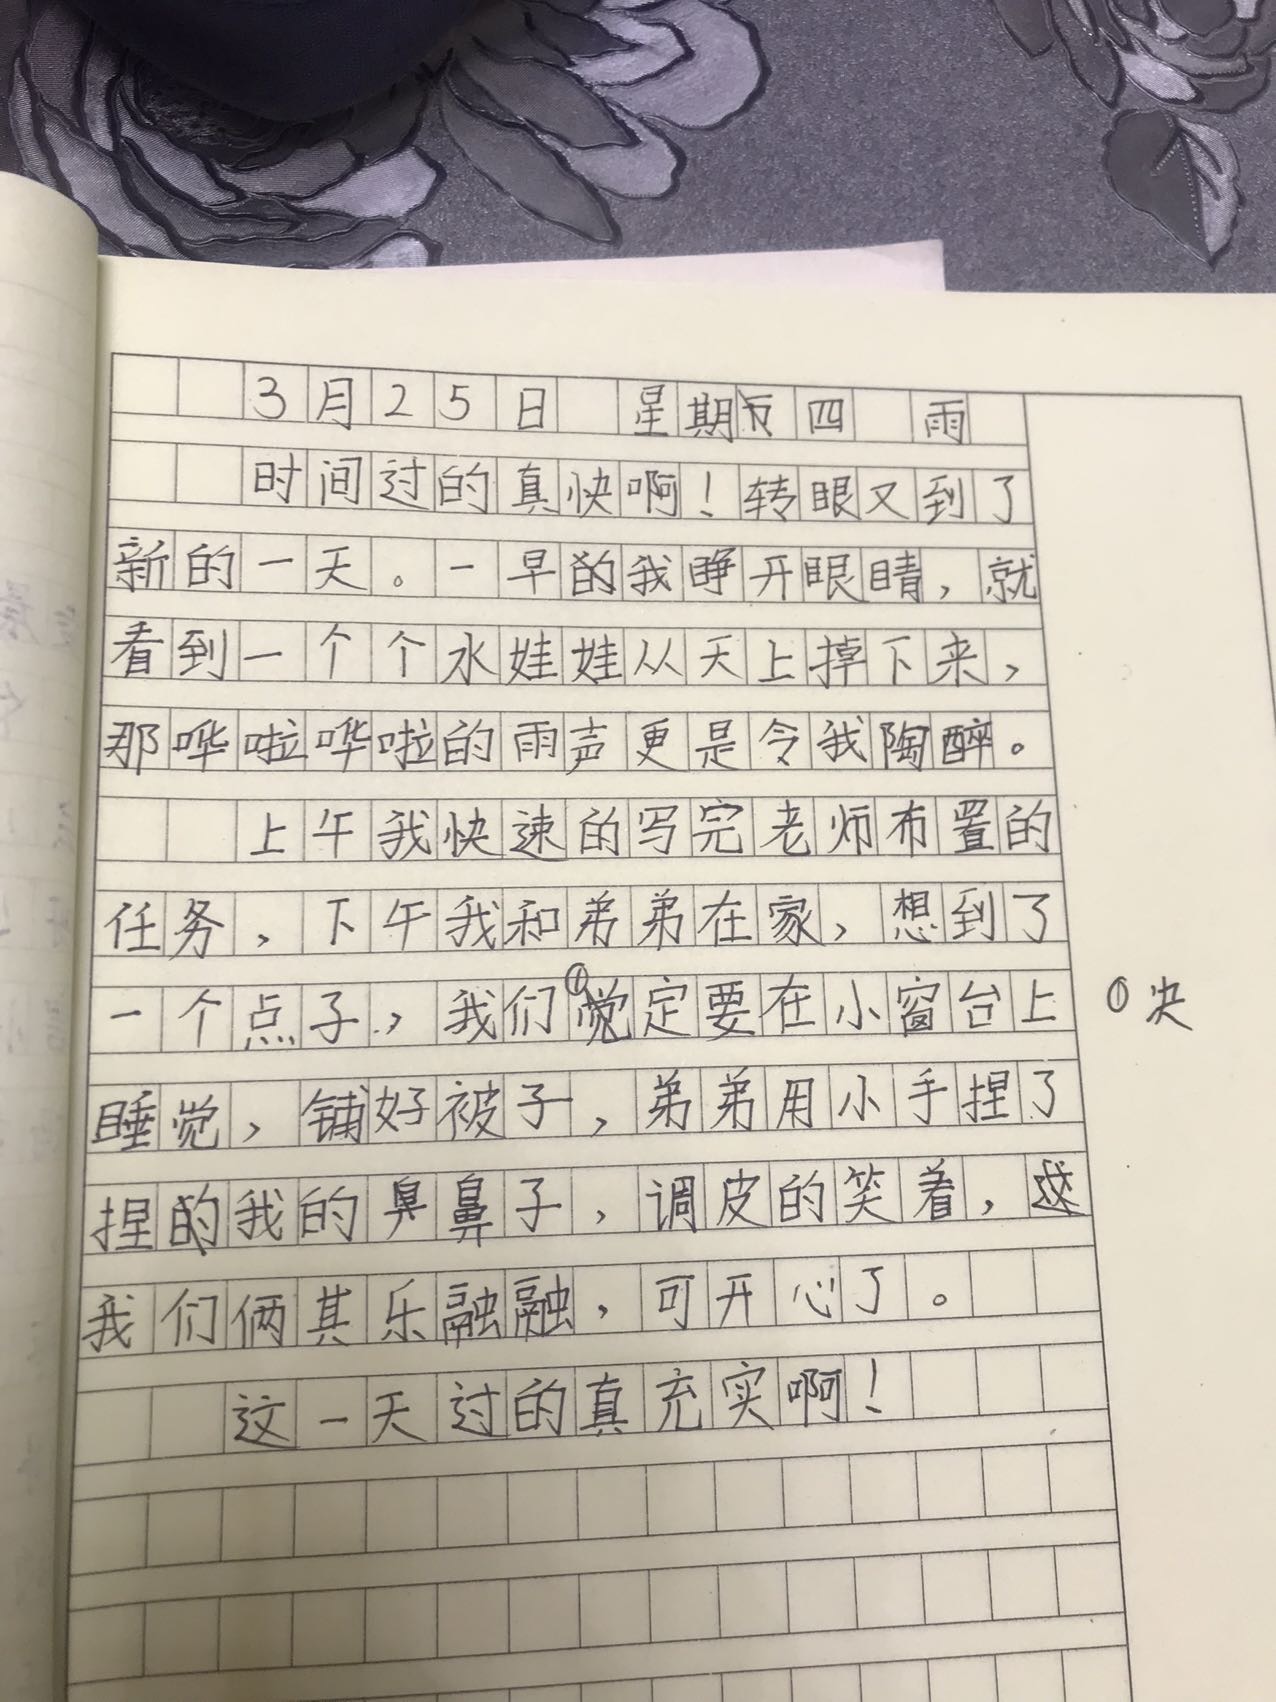 3月25日 星期四 雨
时间过的真快啊！转眼又到了
新的一天。一早的我睁开眼睛，就
看到一个个水娃娃从天上掉下来，
那哗啦哗啦的雨声更是令我陶醉。
上午我快速的写完老师布置的
任务，下午我和弟弟在家，想到了
一个点子，我们①觉定要在小窗台上
①决
睡觉，铺好被子，弟弟用小手捏了
捏我的鼻子，调皮的笑着，
我们俩其乐融融，可开心了。
这一天过的真充实啊！